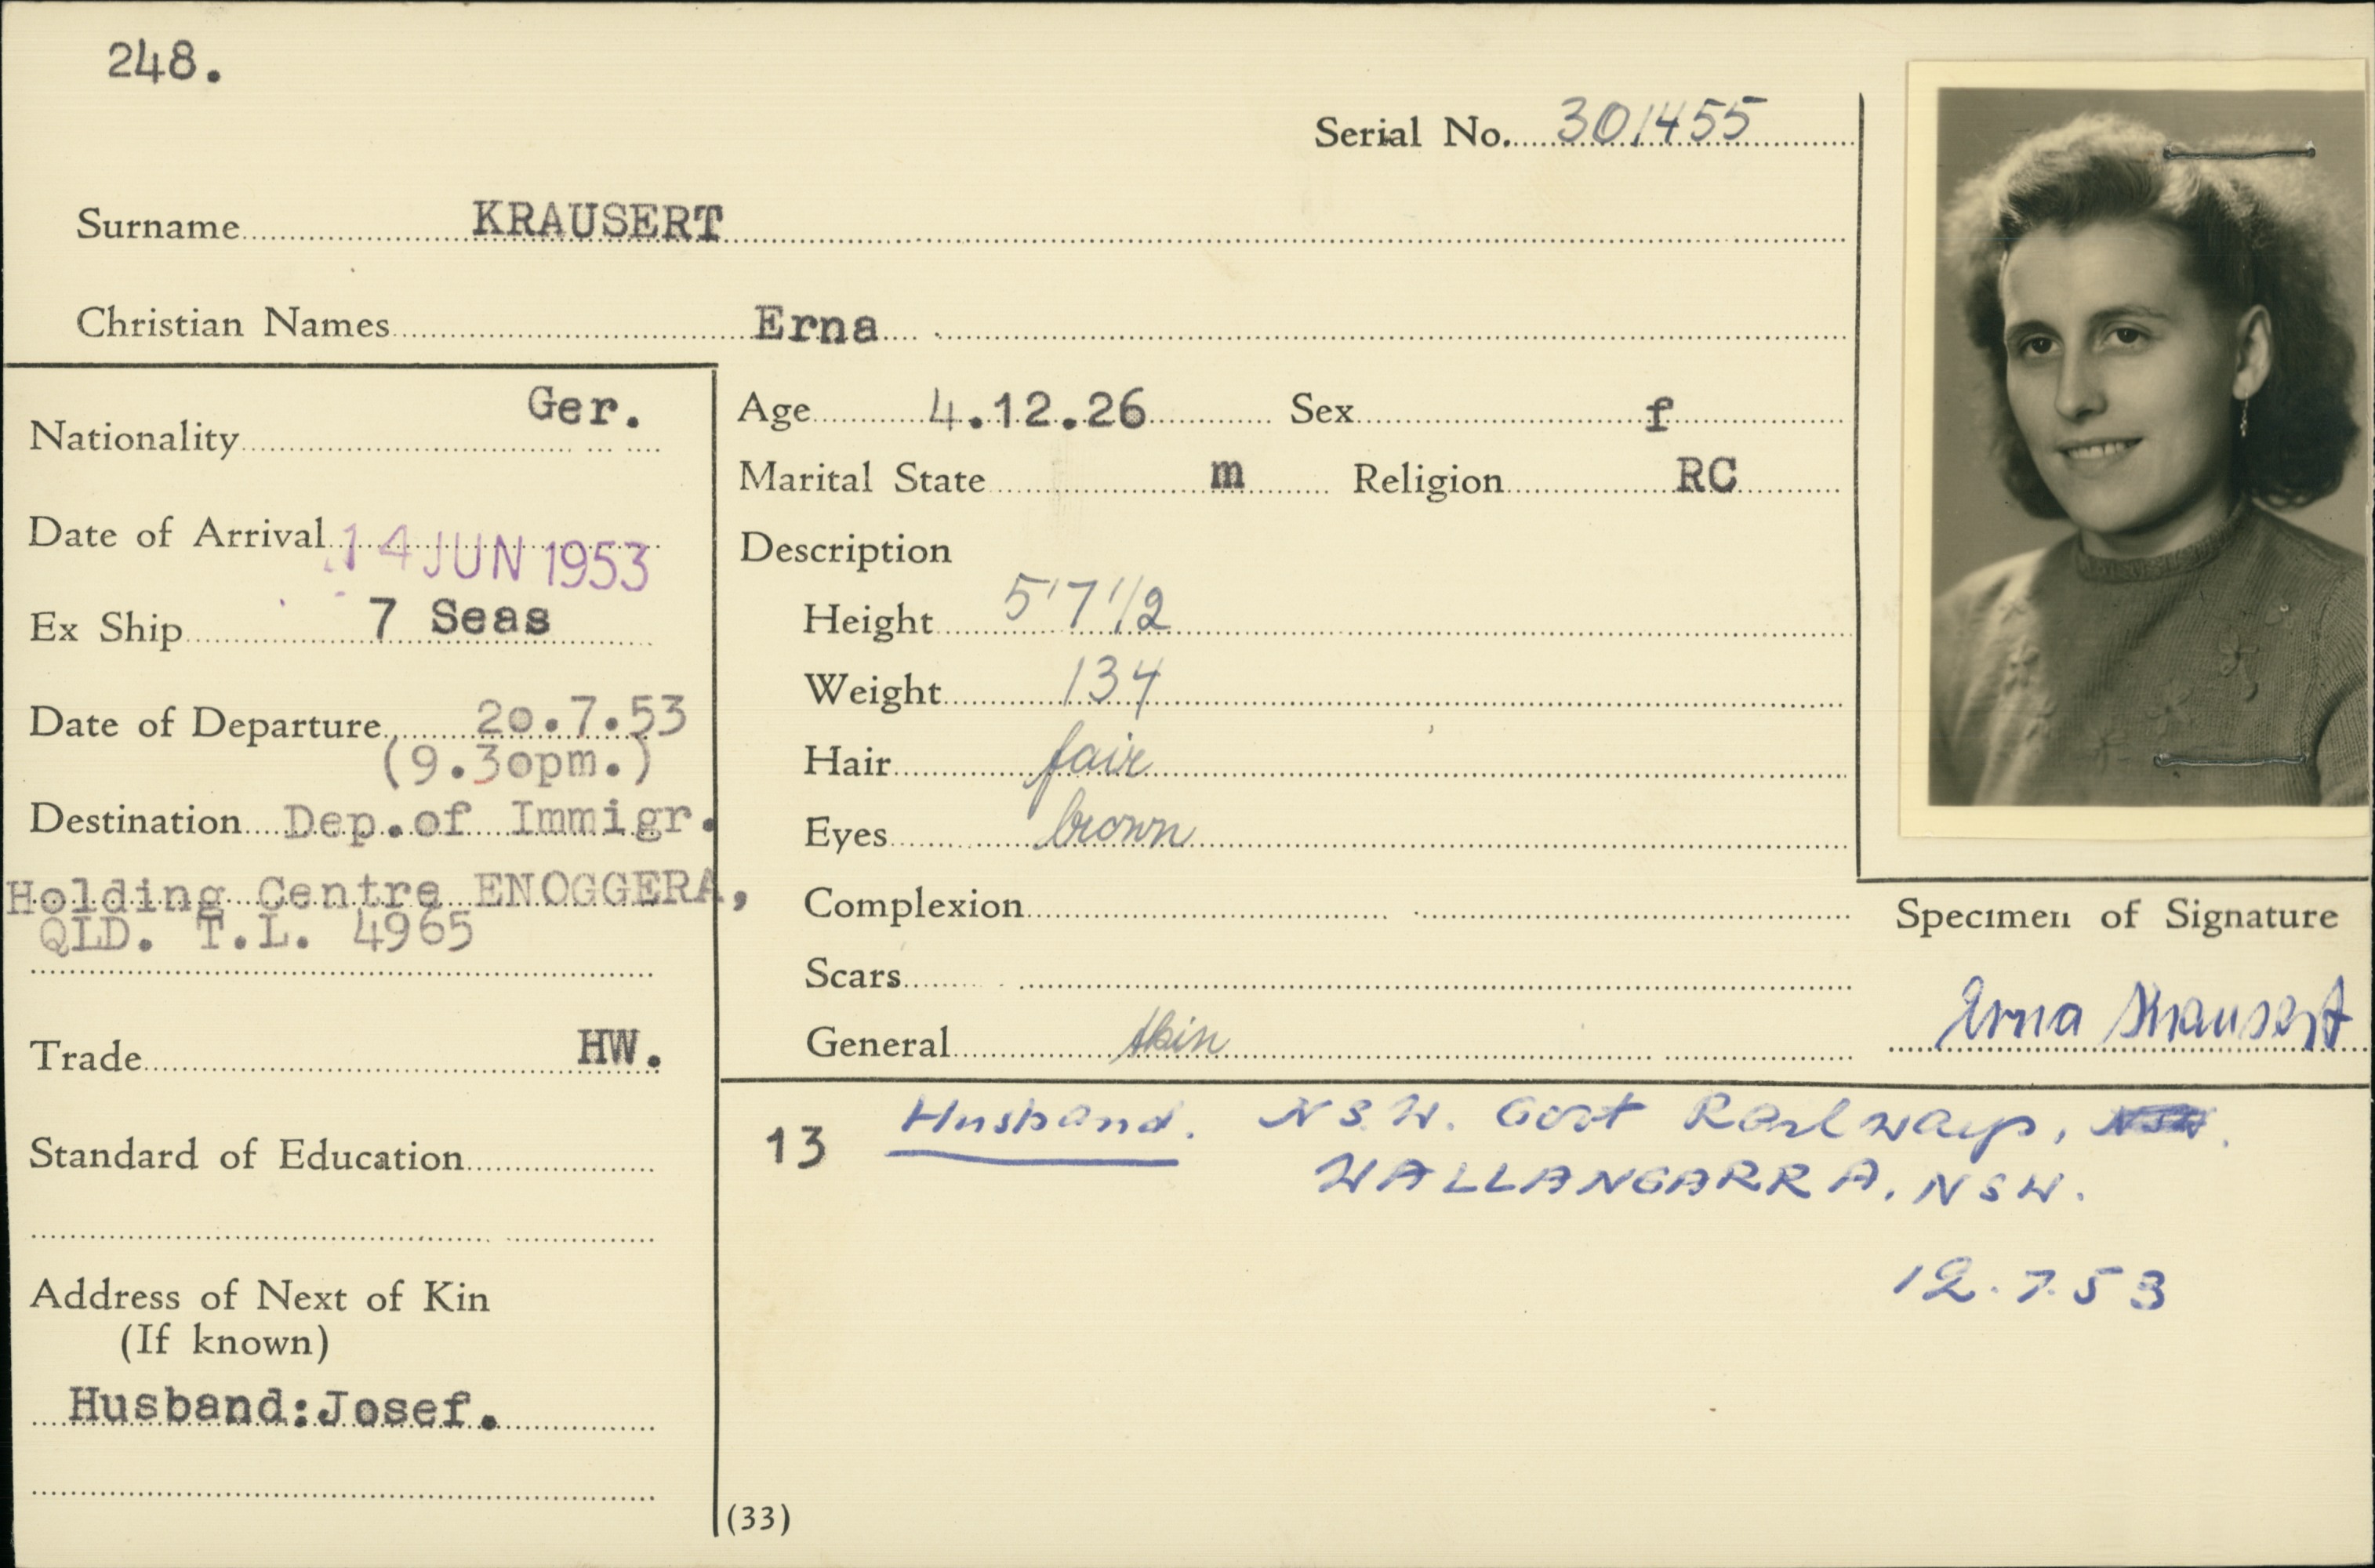 248.
Serial No. 301455
Surname KRAUSERT
Christian Names Erna
Nationality Ger.
Date of Arrival 14 JUN 1953
Ex Ship 7 Seas
Date of Departure 20.7.53
(9.30pm.)
Destination Dep.of Immigr.
Holding Centre ENOGGERA,
QLD. T.L. 4965
Trade HW.
Standard of Education
Address of Next of Kin
(If known)
Husband:Josef.
Age 4.12.26 Sex f
Marital State m Religion RC
Description
Height 5'7 1/2
Weight 134
Hair fair
Eyes brown
Complexion
Scars
General thin
Specimen of Signature
Erna Krausert
13 Husband. N.S.W. Govt Railways,
WALLANGARRA, NSW.
12.7.53
(33)